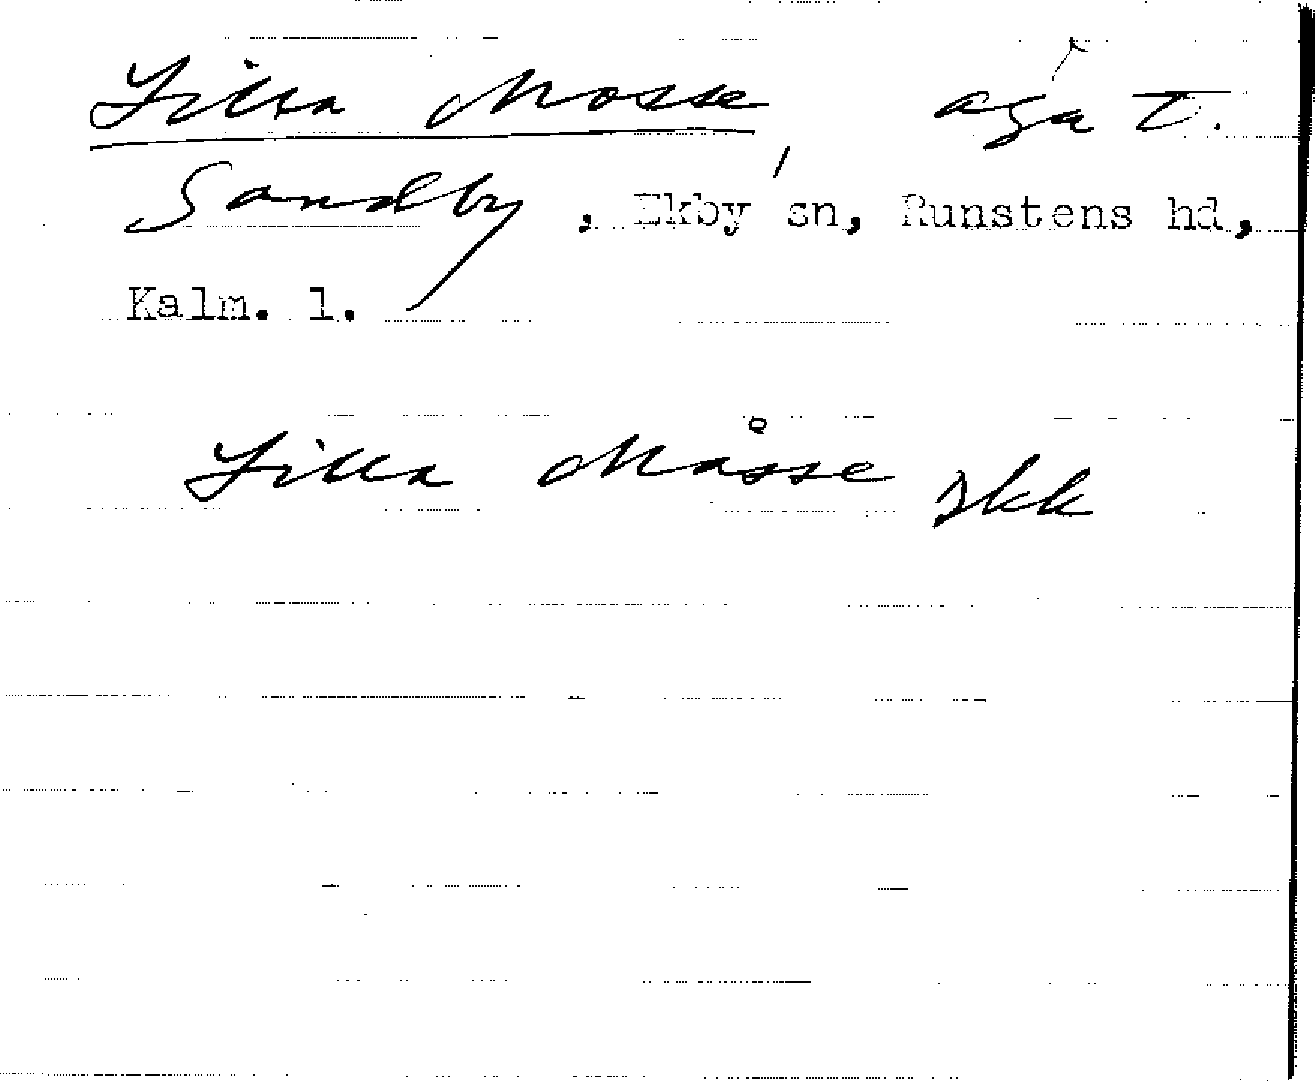 Lilla Mosse äga t.
Sandby, Ekby sn, Runstens hd,
Kalm. l.
Lilla Måsse skk